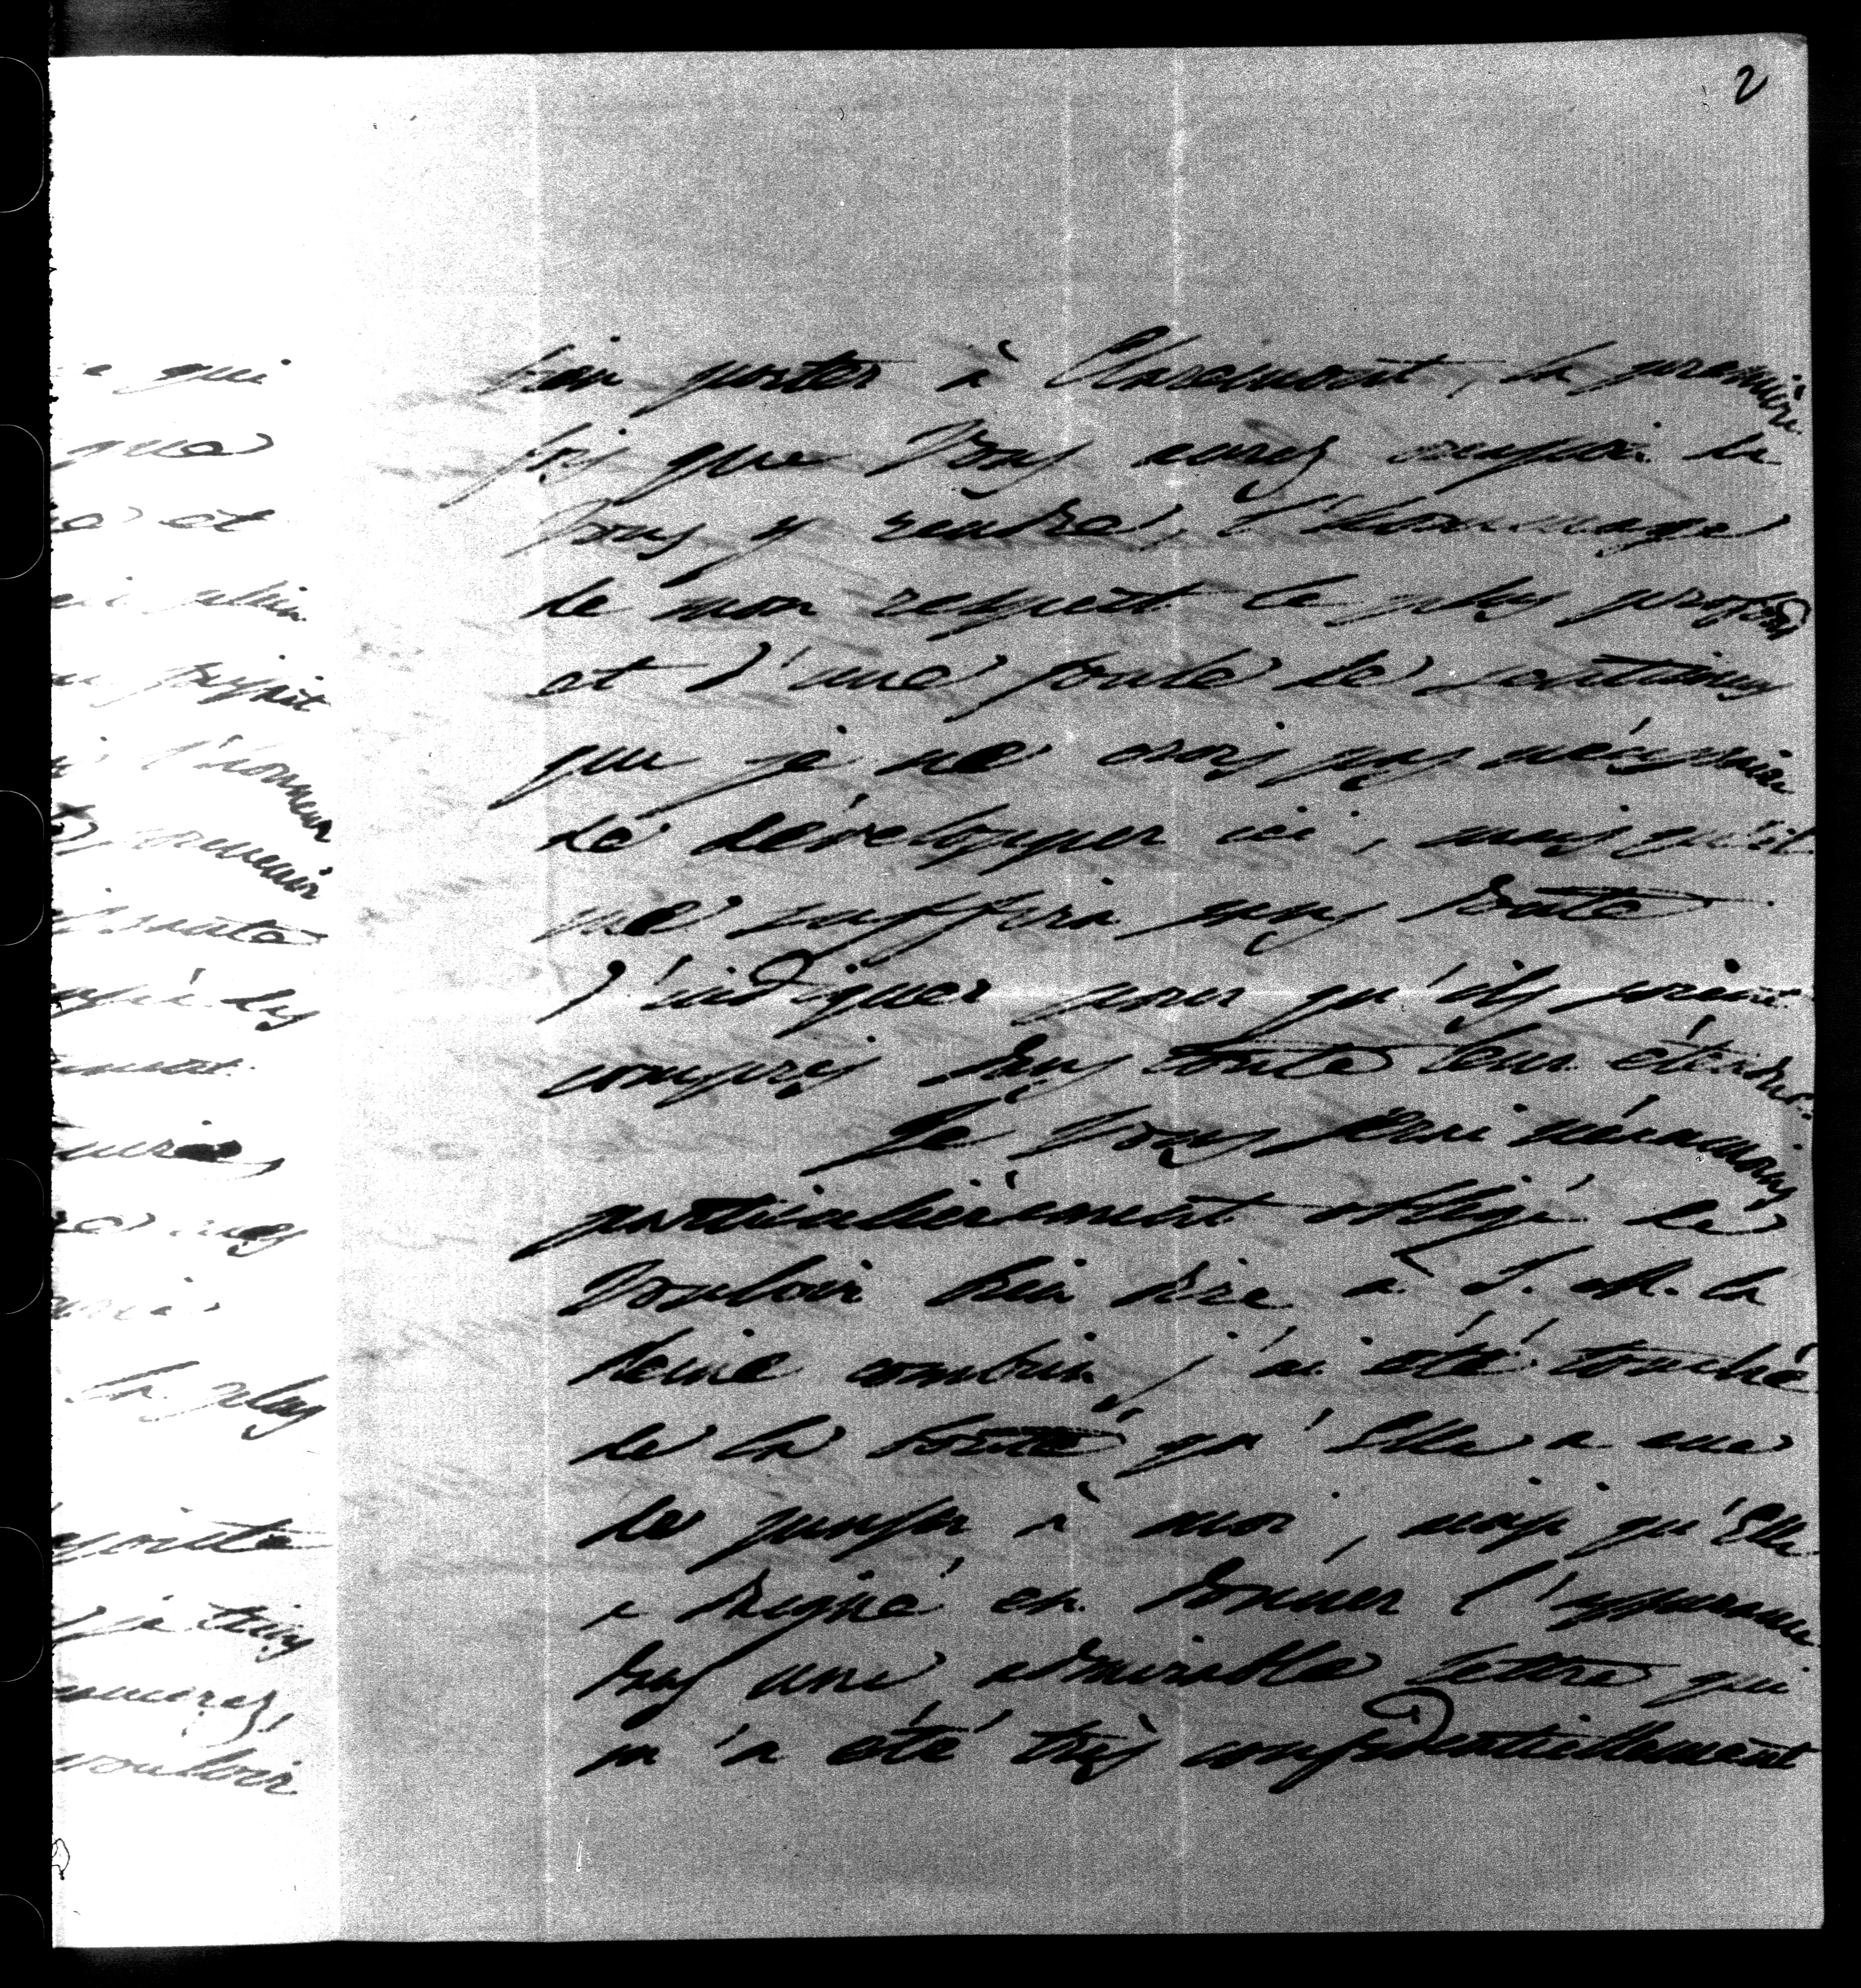 2
bien porter à Claremont, la première
fois que Vous aurez occasion de
Vous y rendre, l'hommage
de mon respect le plus profond
et d'une foule de sentimens
que je ne crois pas nécessaire
de développer ici, mais qu'il
me suffira sans doute
d'indiquer pour qu'ils soient
compris dans toute leur étendue.
Je Vous serai néanmoins
particulièrement obligé de
Vouloir bien dire à S. M. la
Reine combien j'ai été touché
de la bonté qu'Elle a eue
de penser à moi, ainsi qu'Elle
a daigné en donner l'assurance
dans une admirable lettre qui
m'a été très confidentiellement
qui
que
et
l'honneur
les
la plus
vouloir